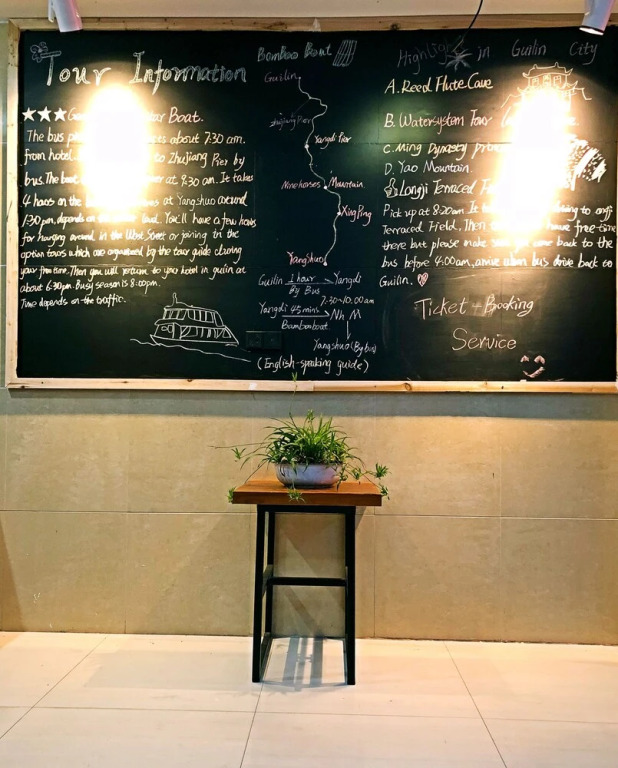 Tour Information
Boat.
The bus about 7:30 am.
from hotel. to Zhujiang Pier by
bus. The boat at 9:30 am. It takes
4 hours on the at Yangshuo around
1:30 pm, depends on You'll have a few hours
for hanging around in the West Street or joining in the
option tours which are organized by the tour guide during
your free time. Then you will return to your hotel in guilin at
about 6:30pm. Busy season is 8:00pm.
Time depends on the traffic.
Bamboo Boat
Guilin
Zhujiang Pier
Yangdi Pier
Ninehorses Mountain.
XingPing
Yangshuo
Guilin 1 hour Yangdi
By Bus
7:30-10:00am
Yangdi 45 mins Nh M
Bambooboat
Yangshuo (By bus)
(English-speaking guide)
Highlight in Guilin City
A. Reed Flute Cave
B. Watersystem Tour
C. Ming Dynasty
D. Yao Mountain.
Longji Terraced
Pick up at 8:20am. It to
Terraced Field. Then free time
there but please make come back to the
bus before 4:00am, bus drive back to
Guilin.
Ticket + Booking
Service